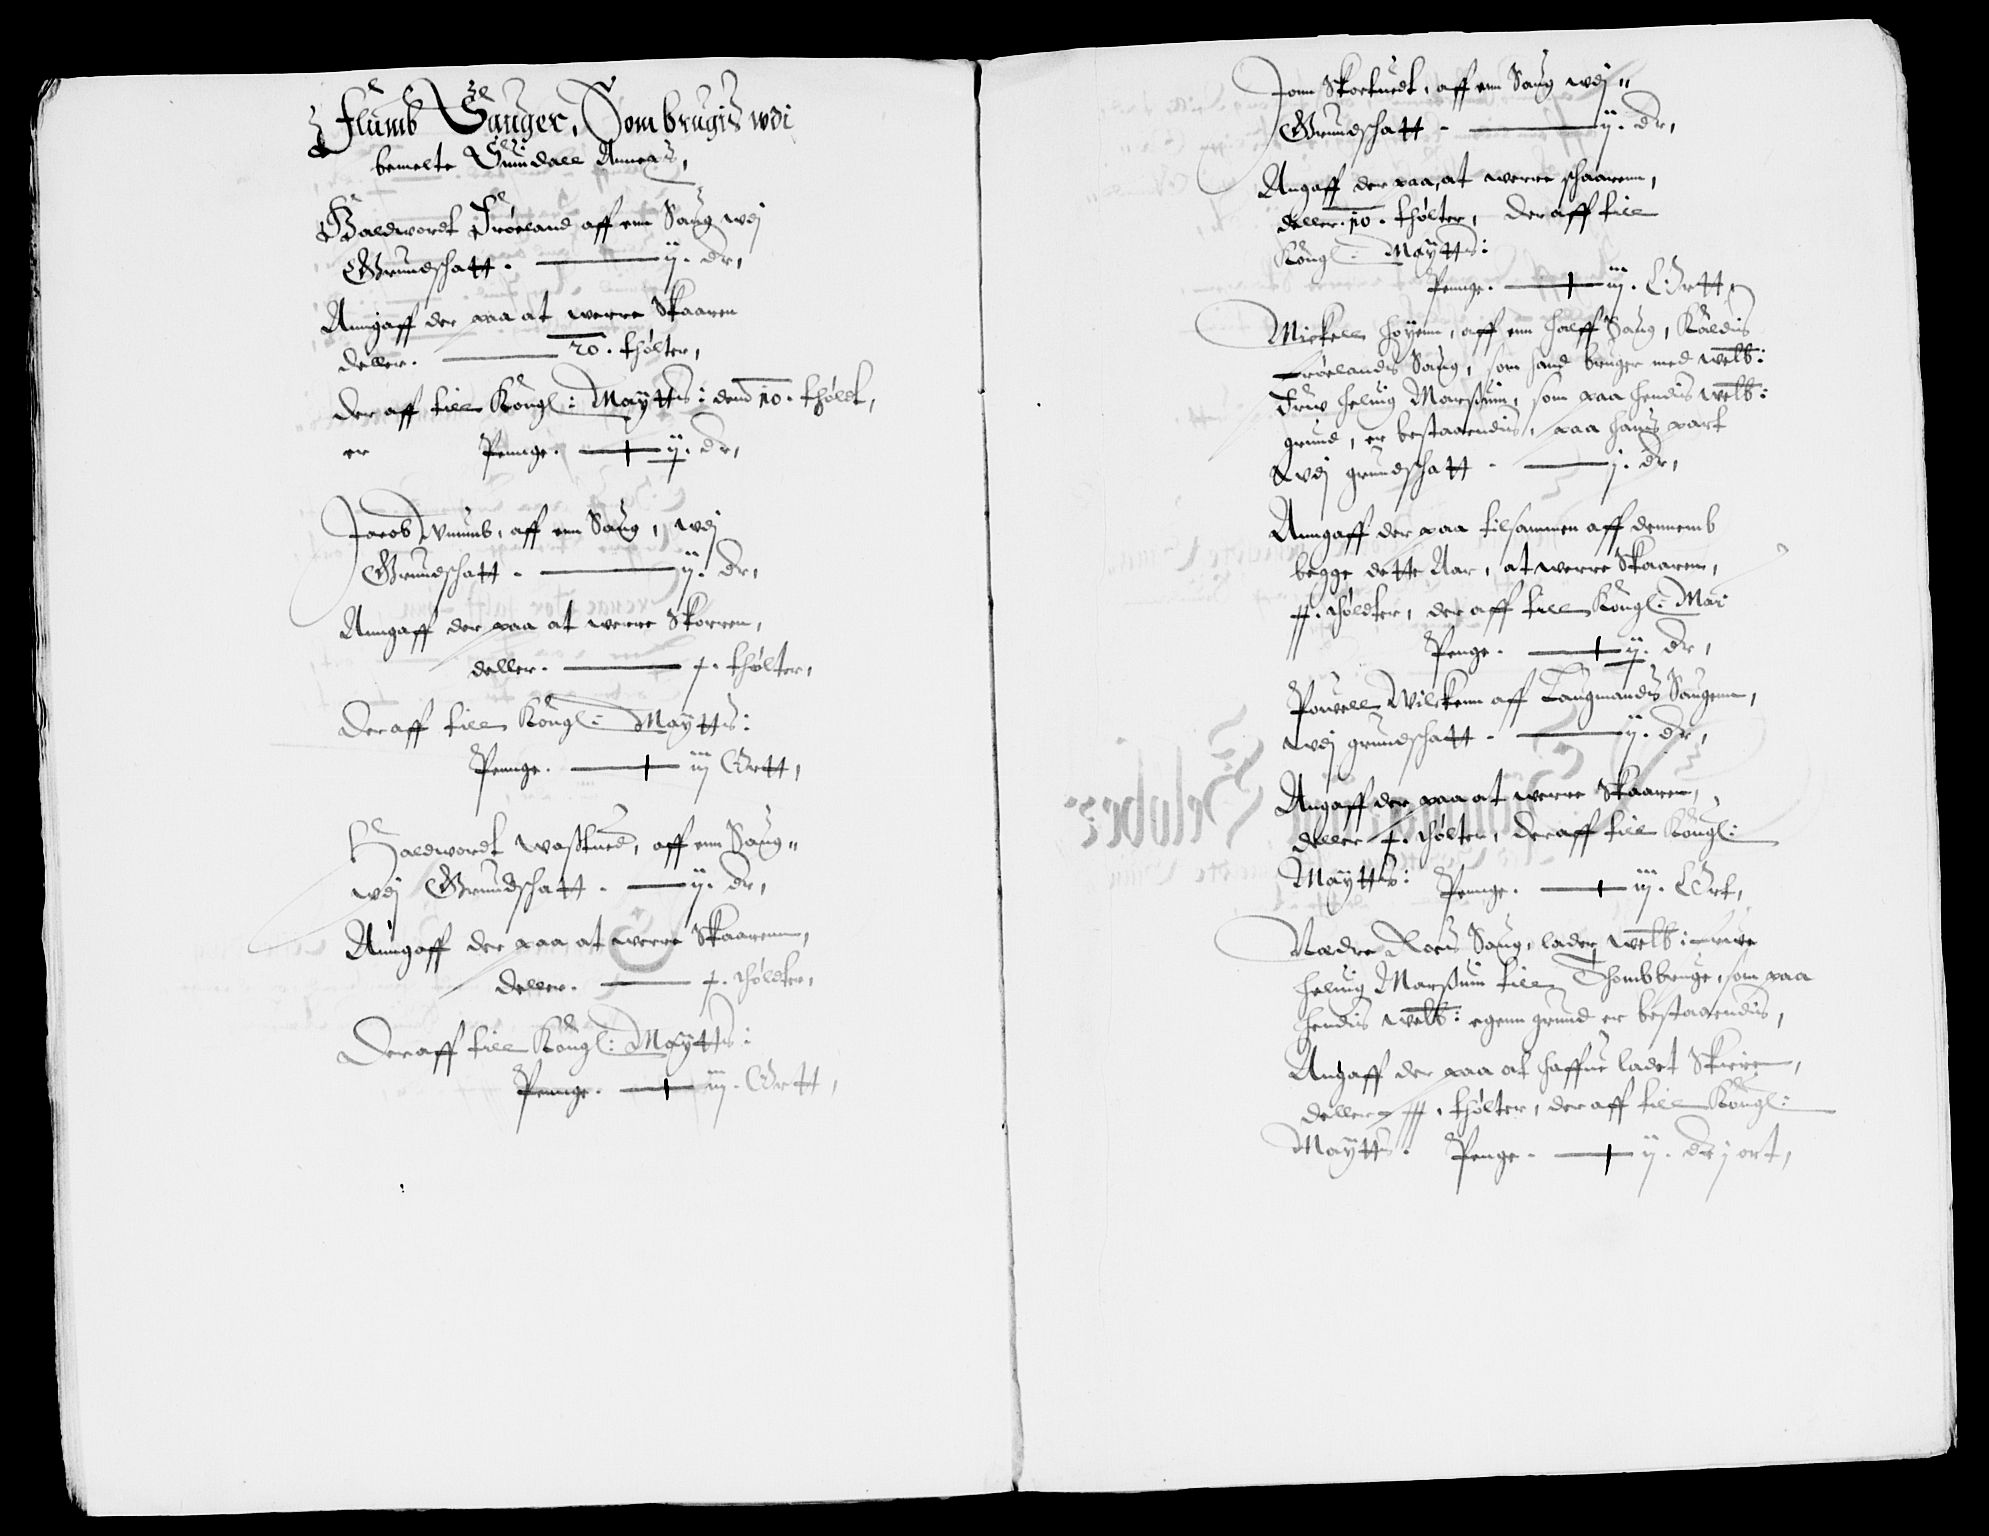 Flumb Sauger, Som brugis wdi
bemelte Sundall Annex,
Haldwordt Frøeland aff enn Saug wdj
Grundschatt. ij. dr,
Anngaff der paa at werre Skaaren
deller. 20. thølter,
der aff till Kongl: Maÿtts: dend 10. thøldt,
er Pennge. ij. dr,
Jacob aff enn Saug, wdj
Grundschatt. ij. dr,
Anngaff der paa at werre Skorren,
deller. thølter,
der aff till Kongl: Maÿtts:
Pennge. iij Ortt,
Haldwordt aff enn Saug
wdj Grundschatt. ij. dr,
Anngaff der paa at werre Skaarenn,
deller. thøldter,
Der aff till Kongl: Maÿtts:
Pennge. iij. Ortt,
Jonn aff enn Saug wdj
Grundschatt. ij. dr,
Angaff der paa, at werre schaarenn,
deller. 10. thølter, der aff till
Kongl: Maÿtts:
Pennge. iij. Ortt,
Mickell Høyenn, aff enn halff Saug, Kaldis
Frøelandts Saug, som hand bruger med welb:
Frw Heluig Marßuin, som paa hendis welb:
grund, er bestaaendis, paa hans part
wdj grundschatt. j. dr,
Anngaff der paa tilsammen aff dennemb
begge dette Aar, at werre Skaaren,
thøldter, der aff till Kongl: Mai
Penge. ij. dr,
Powell Wilckenn aff Laugmandts Saugenn,
wdj grundschatt. ij. dr,
Angaff der paa at werre Skaaren,
deller thølter, der aff till Kongl:
Maÿtts: Pennge. iij. Ort,
Nædre Saug, lader welb: Frwe
Heluig Marßuin till bruge, som paa
hendis welb: egenn grund er bestaaendis,
Angaff der paa at haffue ladet
deller thølter, der aff till Kongl:
Maÿtts. Penge. ij. dr j ort,